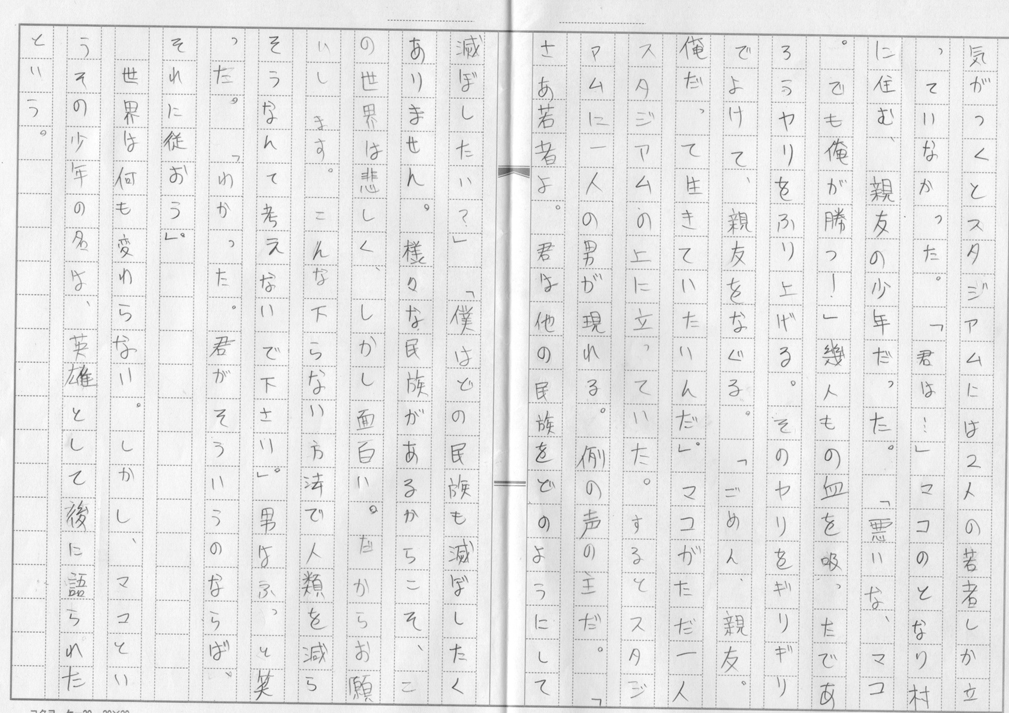 気がつくとスタジアムには2人の若者しか立
っていなかった。「君は!」マコのとなり村
に住む、親友の少年だった。「悪いな、マコ
。でも俺が勝つ!」幾人もの血を吸ったであ
ろうヤリをふり上げる。そのヤリをギリギリ
でよけて、親友をなぐる。「ごめん、親友。
俺だって生きていたいんだ」マコがただ一人
スタジアムの上に立っていた。するとスタジ
アムに一人の男が現れる。例の声の主だ。「
さあ若者よ。君は他の民族をどのようにして
滅ぼしたい?」「僕はどの民族も滅ぼしたく
ありません。様々な民族があるからこそ、こ
の世界は悲しく、しかし面白い。だからお願
いします。こんな下らない方法で人類を減ら
そうなんて考えないで下さい」。男はふっと笑
った。「わかった。君がそういうのならば、
それに従おう」。
世界は何も変わらない。しかし、マコとい
うその少年の名は、英雄として後に語られた
という。